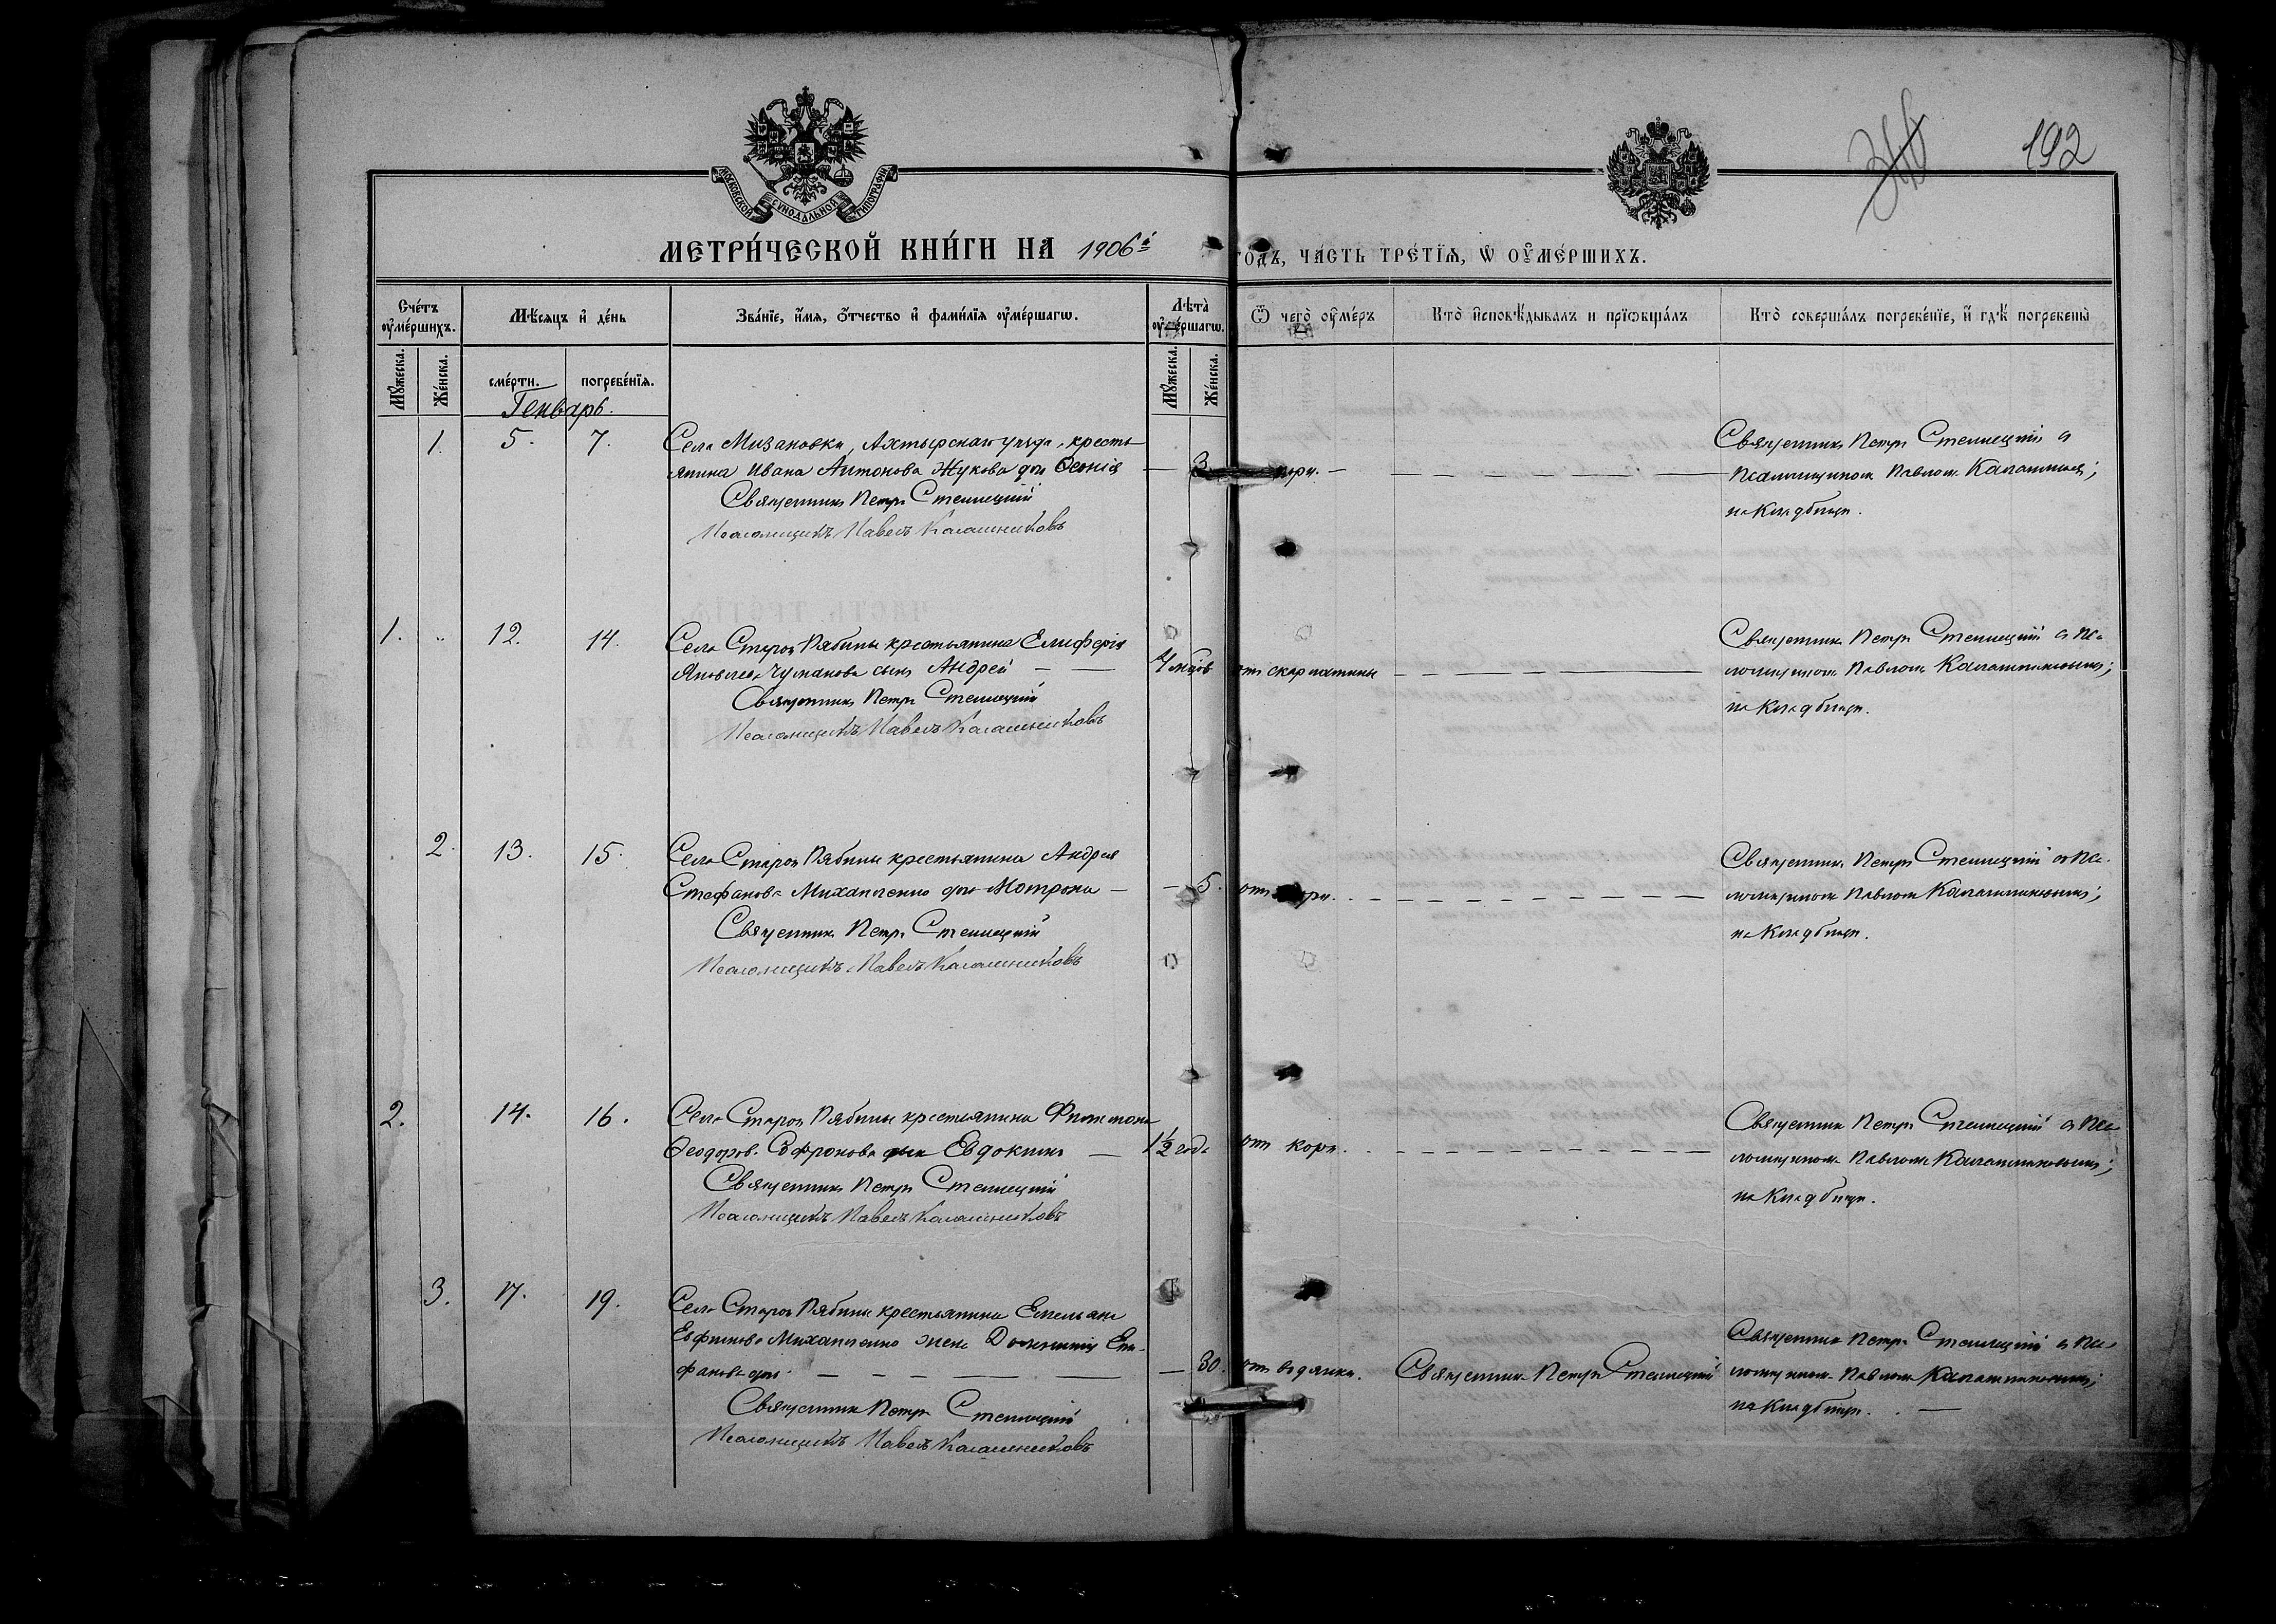 192
МОСКОВСКОЙ СУНОДАЛЬНОЙ ТИПОГРАФІИ
МЕТРИ́ЧЕСКОЙ КНИ́ГИ НА 1906й
ГО́ДЪ, ЧА́СТЬ ТРЕ́ТІѦ, Ѡ ОУ҆МЕ́РШИХЪ.
Сче́тъ оу҆ме́ршихъ.
Мѣ́сяцъ и҆ де́нь
Зва́нїе, и҆́мѧ, ѻ҆́тчество и҆ фами́лїѧ оу҆ме́ршагѡ.
Лѣ́та оу҆ме́ршагѡ.
Ѿ чегѡ̀ оу҆ме́ръ
Кто̀ и҆сповѣ́дывалъ и҆ прїѡбща́лъ
Кто̀ соверша́лъ погребе́нїе, и҆ гдѣ̀ погребены̀
Мꙋ́жеска.
Же́нска.
сме́рти.
погребе́нїѧ.
Мꙋ́жеска.
Же́нска.
Генварь.
1. 5. 7.
Села Мизановки, Ахтырскаго уезда, кресть
янина Ивана Антонова Жукова дочь Ксенія — 3
Священникъ Петръ Стеллецкій
Псаломщикъ Павелъ Калашниковъ
Священникъ Петръ Стеллецкій съ
псаломщикомъ Павломъ
на кладбищѣ.
1. „ 12. 14.
Села Старой Рябины крестьянина Елиферія
Яковлева Чуманова сынъ Андрей — —
Священникъ Петръ Стеллецкій
Псаломщикъ Павелъ Калашниковъ
отъ скарлатины
Священникъ Петръ Стеллецкій съ пса-
ломщикомъ Павломъ Калашниковымъ;
на кладбищѣ.
2. 13. 15.
Села Старой Рябины крестьянина Андрея
Стефанова Михайленко дочь Мотрона — — 5.
Священникъ Петръ Стеллецкій
Псаломщикъ Павелъ Калашниковъ
отъ кори.
Священникъ Петръ Стеллецкій съ пса-
ломщикомъ Павломъ Калашниковымъ;
на кладбищѣ.
2. 14. 16.
Села Старой Рябины крестьянина Филимона
Ѳеодоров. Софронова сынъ Евдокимъ — 1½ года
Священникъ Петръ Стеллецкій
Псаломщикъ Павелъ Калашниковъ
отъ кори.
Священникъ Петръ Стеллецкій съ пса-
ломщикомъ Павломъ Калашниковымъ;
на кладбищѣ.
3. 17. 19.
Села Старой Рябины крестьянина Емельяна
Евфимова Михайленко жена Епи-
фанова дочь — 30.
Священникъ Петръ Стеллецкій
Псаломщикъ Павелъ Калашниковъ
отъ водянки.
Священникъ Петръ Стеллецкій
Священникъ Петръ Стеллецкій съ пса-
ломщикомъ Павломъ Калашниковымъ;
на кладбищѣ.